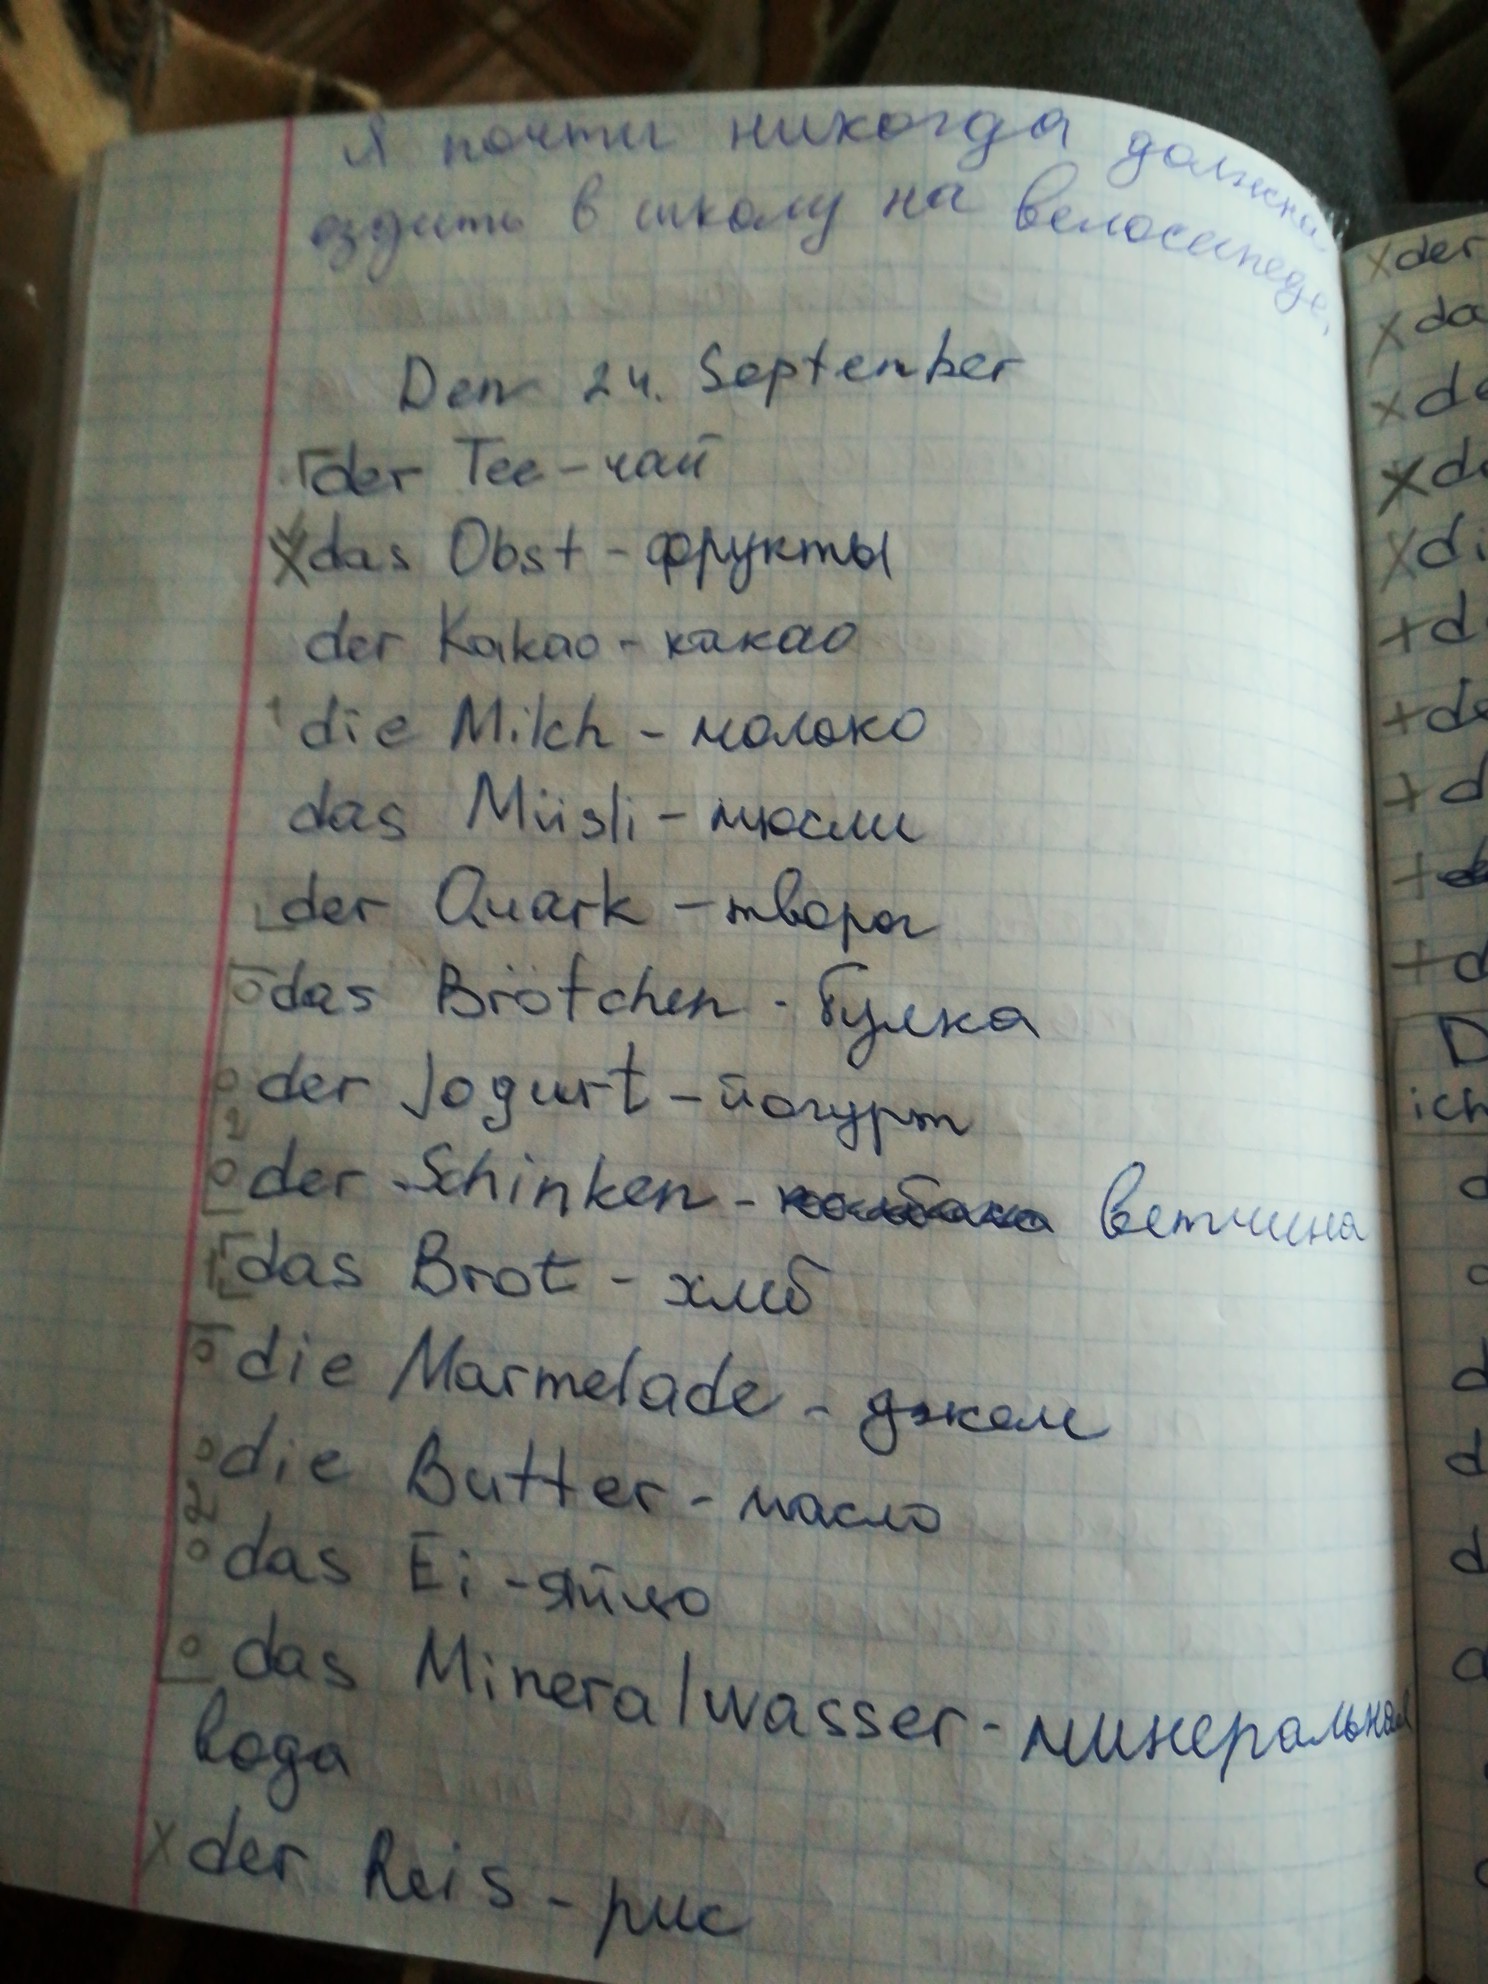 Я почти никогда должна
ездить в школу на велосипеде.
Den 24. September
der Tee – чай
x das Obst – фрукты
der Kakao – какао
die Milch – молоко
das Müsli – мюсли
der Quark – творог
das Brötchen - булка
der Jogurt – йогурт
2
der Schinken - колбаса ветчина
das Brot – хлеб
die Marmelade – джем
die Butter – масло
2
das Ei – яйцо
das Mineralwasser - минеральная
вода
x der Reis – рис
x der
x da
x de
x de
x di
+ d
+ de
+ d
+ d
D
ich
d
d
d
d